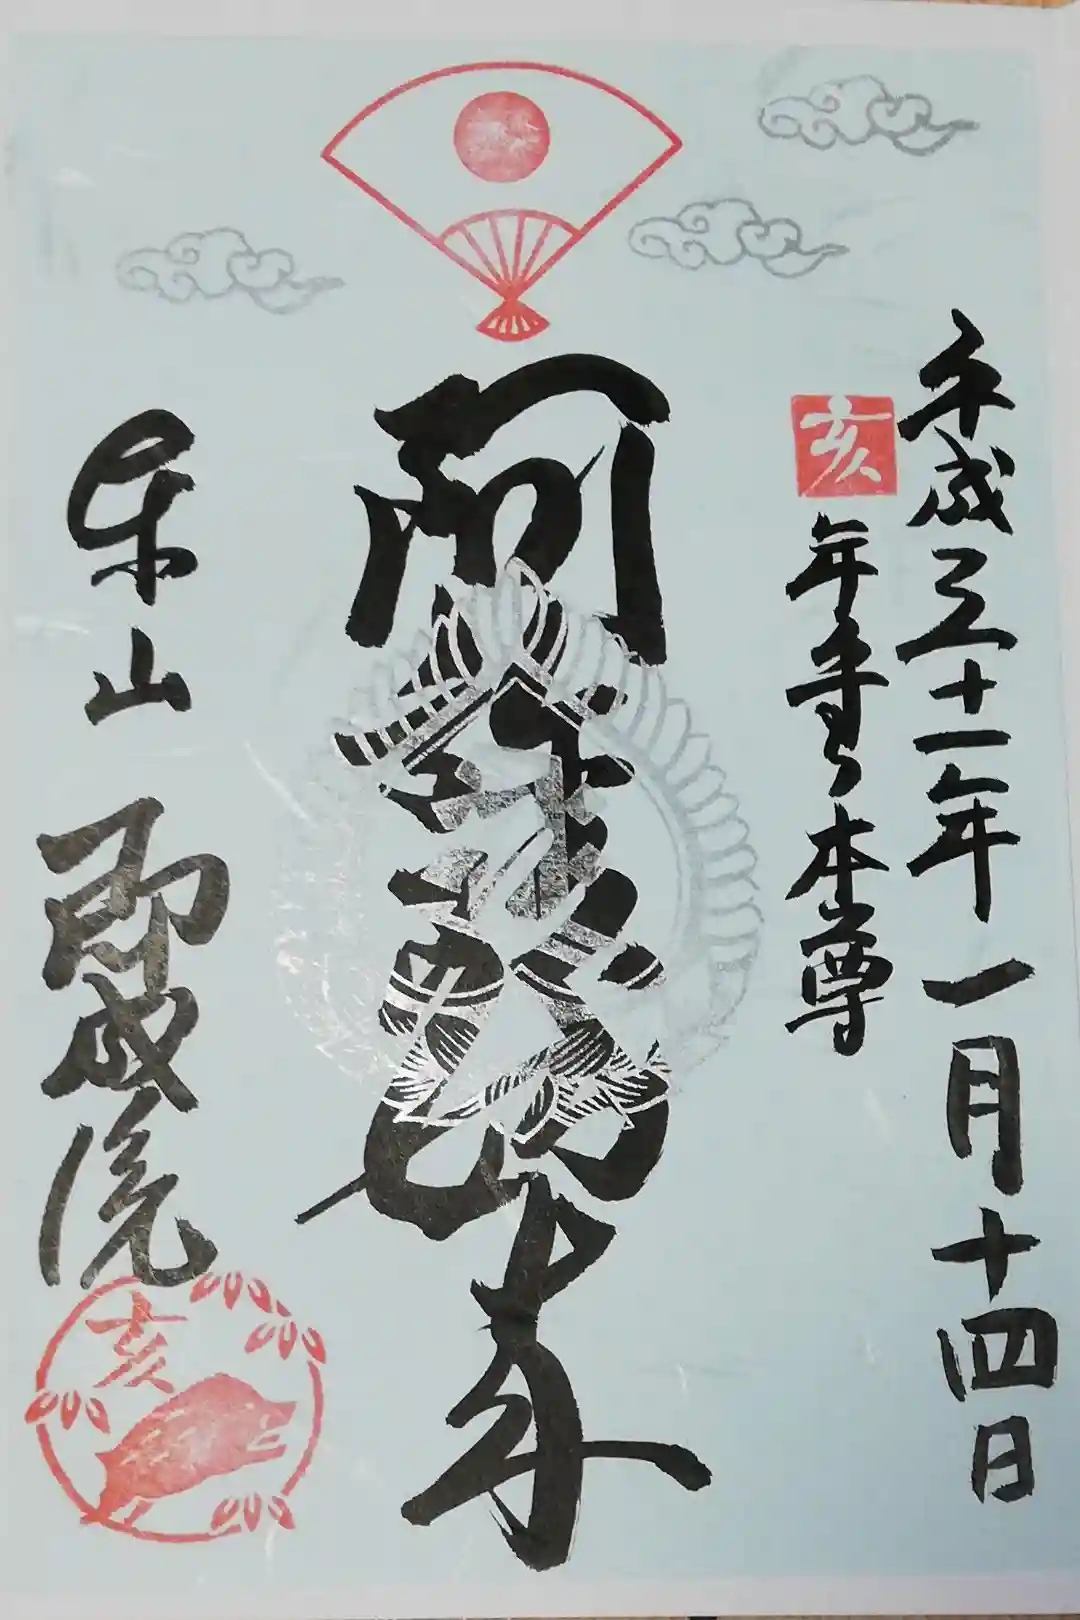 平成三十一年一月十四日
亥年守り本尊
阿弥陀如来
米山
即成院
亥